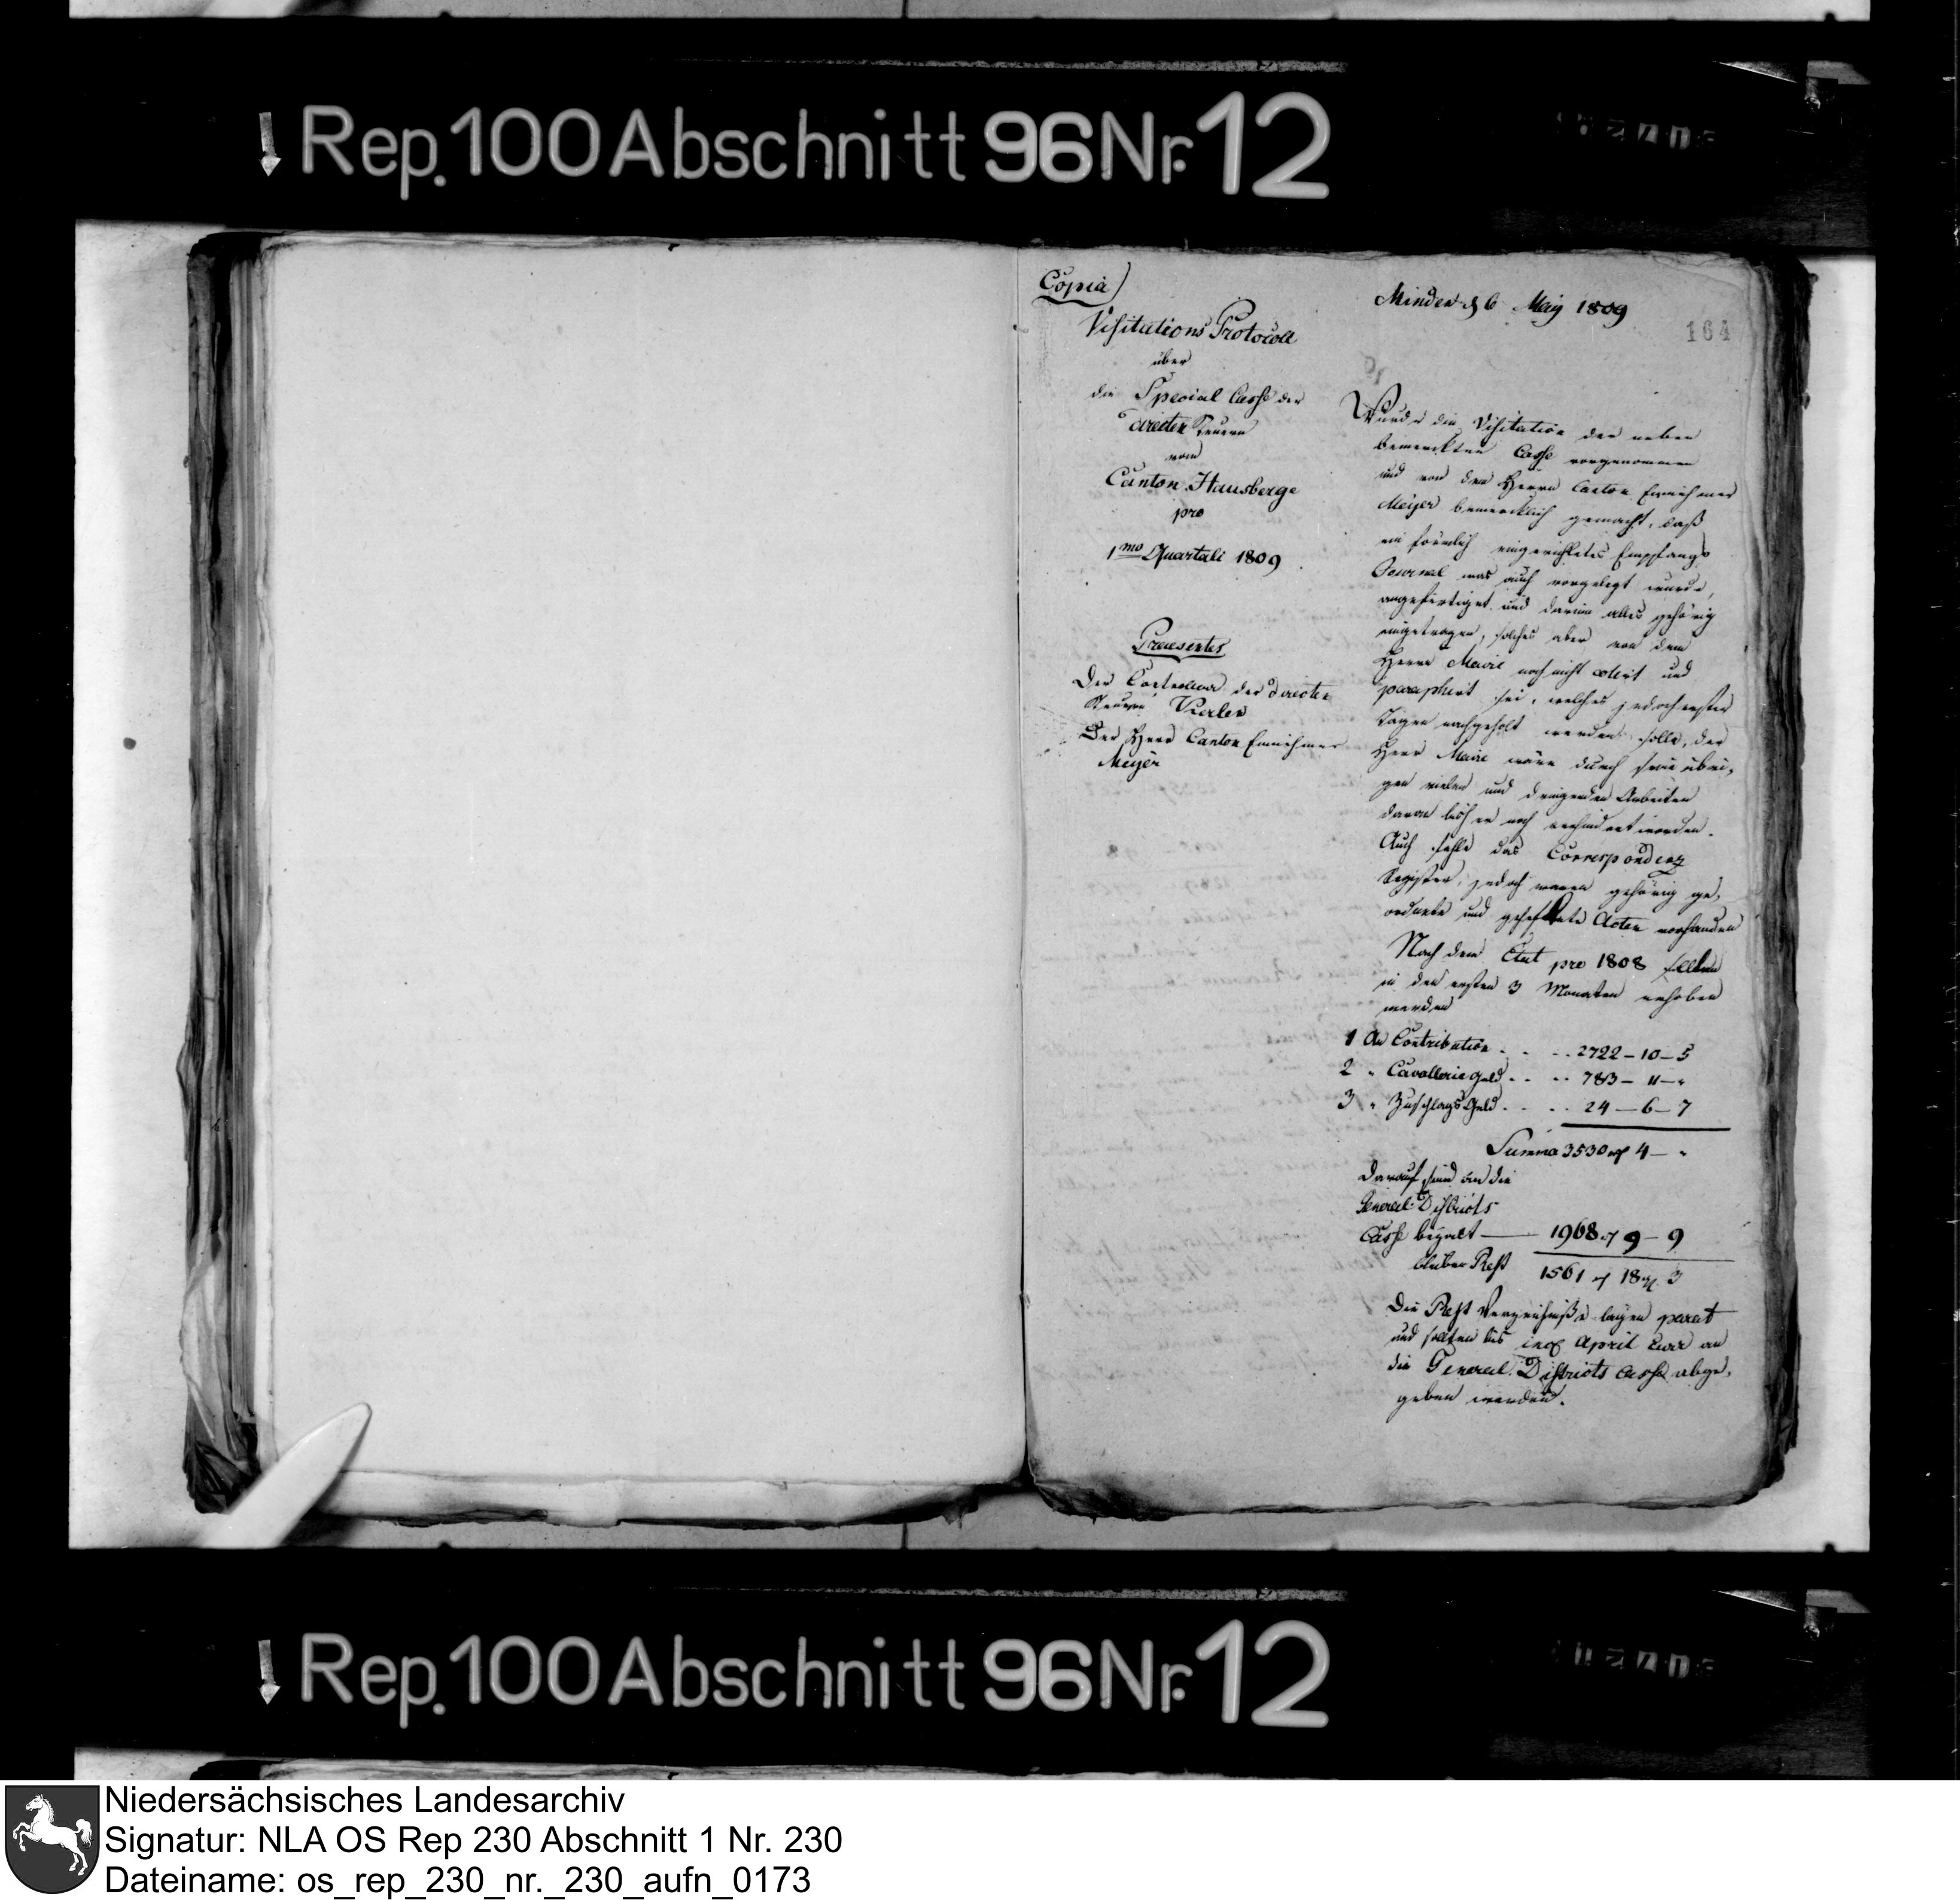 Rep. 100 Abschnitt 96 Nr. 12
Copia
Visitations Protocoll
über
die Special Casse der
directen Steuern
vom
Canton Hausberge
pro
1mo Quartali 1809
Praesentes
Der Controleur der directen
Steuern
Der Herr Canton Einnehmer
Meyer
Minden d 6 May 1809
164
Wurde die Visitation der neben
bemerkten Casse vorgenommen
und von dem Herrn Canton Einnehmer
Meyer bemerklich gemacht, daß
ein förmlich eingerichtetes Empfangs
Journal was auch vorgelegt wurde,
angefertiget und darinn alles gehörig
eingetragen, solches aber von dem
Herrn Maire noch nicht cotirt und
paraphirt sei, welches jedoch ersten
Tagen nachgeholt werden solle, der
Herr Maire wäre durch seine übri,
gen vielen und dringenden Arbeiten
daran bisher noch verhindert worden.
Auch fehle das Correspondenz
Register, jedoch waren gehörig ge,
ordnete und geheftete Acten vorhanden
Nach dem Etat pro 1808 sollen
in den ersten 3 Monaten erhoben
werden
1 An Contribution . . . . 2722 – 10 – 5
2 " Cavalleriegeld . . . . 783 – 11 – "
3 " Zuschlags Geld . . . . 24 – 6 – 7
Summa 3530 rf 4 – "
Darauf sind an die
General Districts
Casse bezalt — 1968 rf 9 – 9
bleiben Rest 1561 rf 18 gr 3
Die Rest Verzeichniße lagen parat
und sollten bis incl April an
die General Districts Casse abge,
geben werden.
Rep. 100 Abschnitt 96 Nr. 12
Niedersächsisches Landesarchiv
Signatur: NLA OS Rep 230 Abschnitt 1 Nr. 230
Dateiname: os_rep_230_nr._230_aufn_0173